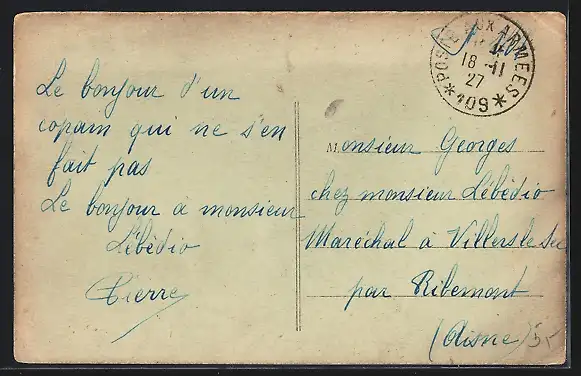 Le bonjour d'un
copain qui ne s'en
fait pas
Le bonjour à monsieur
Lébédio
Pierre
POSTE AUX ARMEES
18-11
27
*109*
Monsieur Georges
chez monsieur Lébédio
Maréchal à Villers le Sec
par Ribemont
(Aisne)